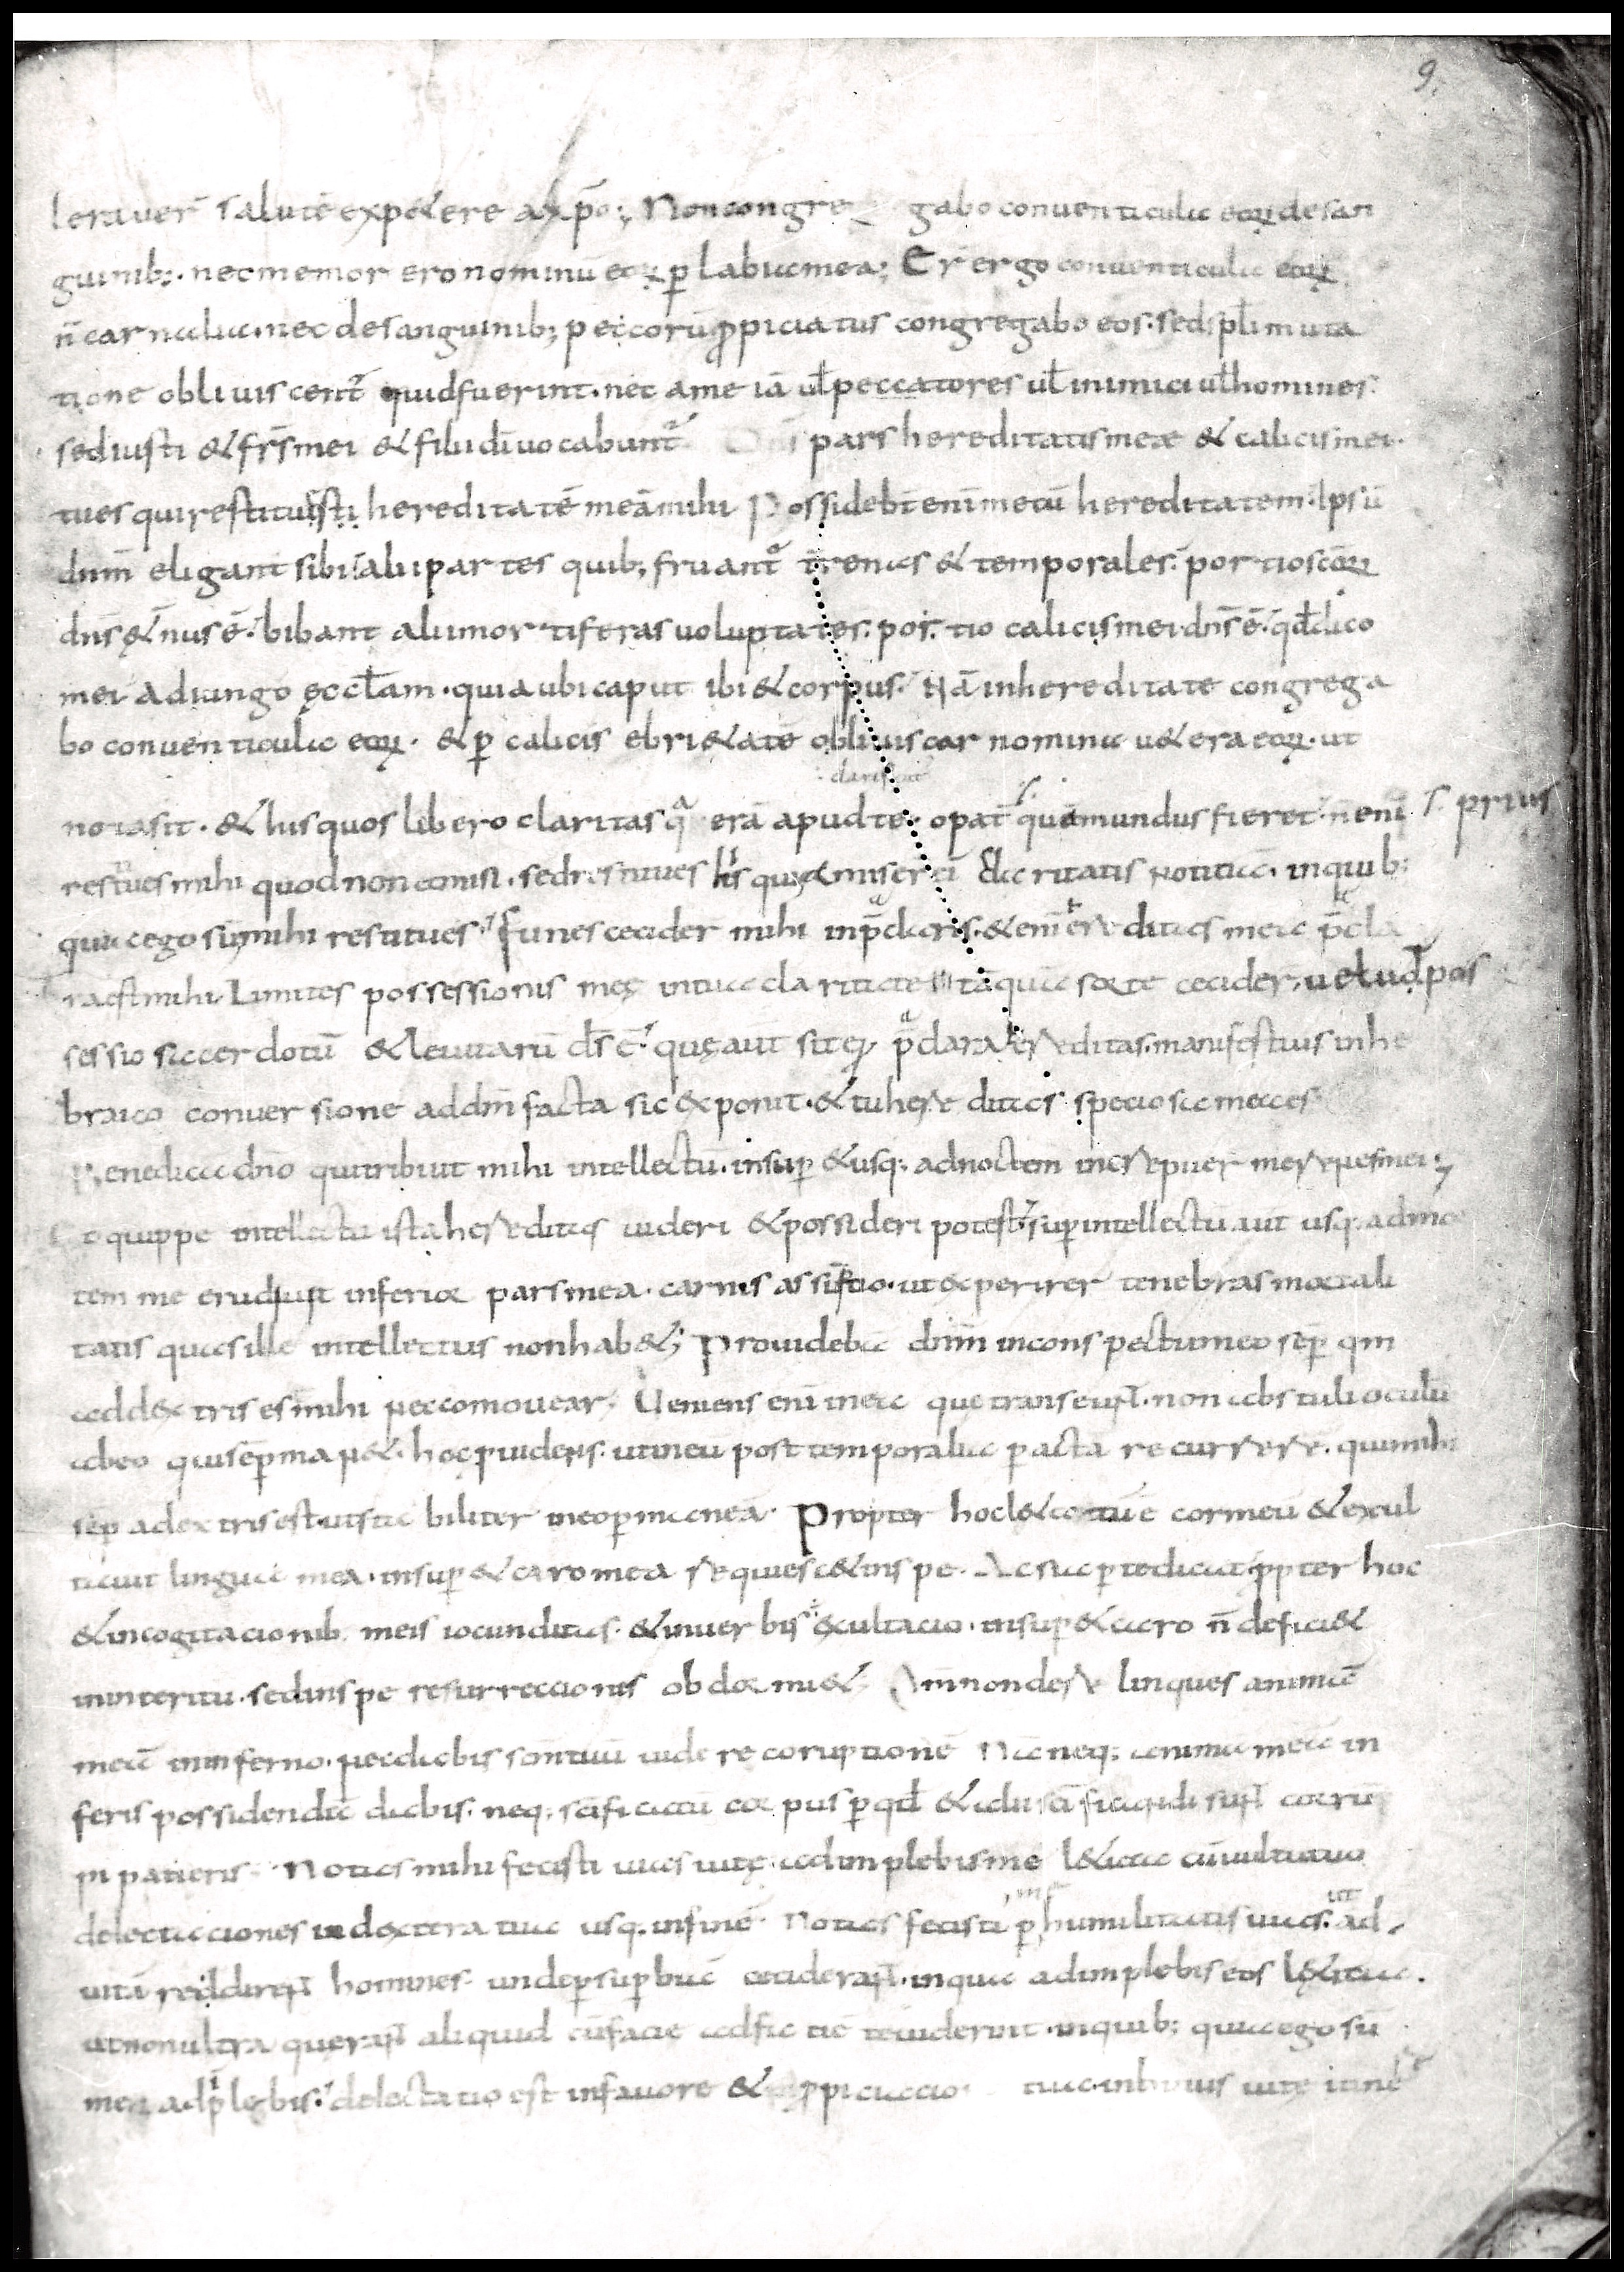 9.
leraver̄ salutē exp&ere a xp̄o; Non congre gabo conuenticula eoꝝ de san
guinib; nec memor ero nominū eoꝝ ꝑ labia mea; Er̄ ergo conuenticula eoꝝ
n̄ carnalia. nec de sanguinib; peccorū ꝓpiciatus congregabo eos. sed spl̄i muta
tione obliuiscent̄ quid fuerint. nec a me iā ul̄ peccatores ul̄ inimici ul̄ homines.
sed iusti & fr̄s mei & filii dī uocabunt̄ Dn̄s pars hereditatis meae & calicis mei.
tu es qui restituisti hereditatē meā mihi Possidebt̄ enī mecū hereditatem. Ipsū
dnm̄ eligant sibi alii partes quib; fruant̄ trenas & temporales. portio scōꝝ
dn̄s &̨nus ē. bibant alii mortiferas uoluptates. portio calicis mei dn̄s ē. qd̄ dico
mei adiungo ęccl̄am. quia ubi caput ibi & corpus. Nā in hereditate congrega
bo conuenticula eoꝝ. & ꝑ calicis ebri&atē obliuiscar nomina u&era eoꝝ. ut
clarificat
nota sit. & his quos libero claritas q̄ erā apud te. opat̄ quā mundus fieret. n̄ enī prius
restitues mihi quod non amisi. sed restitues his qui amiser̄ claritatis notitiā. in quib;
quia ego sū mihi restitues funes cecider̄ mihi in p̄claris. & enī hereditas mea p̄cla
ra est mihi. Limites possessionis meę in tua claritate tāquā sorte cecider̄, uelud pos
sessio sacerdotū & leuitarū d̄s ē. quę aut̄ sit p̄clara hereditas. manifestius in he
braico conuersione ad dm̄ facta sic exponit. & tu hereditas speciosa mea es
Benedicā dn̄o qui tribuit mihi intellectū. insuꝑ & usq; ad noctem increpuer̄ me renes mei;
quippe intellectu ista hereditas uideri & possideri potest. suꝑ intellectū aut̄ usq; ad noc
tem me erudiuit inferior pars mea. carnis assūptio. ut experirer tenebras mortali
tatis quas ille intellectus non hab&; Prouidebā dnm̄ in conspectu meo seꝑ qm̄
a dextris es mihi ne comouear; Ueniens enī in ea quę transeunt. non abstuli oculū
ab eo qui seꝑ man&. hoc ꝓuidens. ut in eū post temporalia ꝑacta recurrere. qui mihi
sēꝑ a dextris est. ut stabiliter in eo ꝑmaneā. Propter hoc l&atū ē cor meū & exul
tauit lingua mea. insuꝑ & caro mea requiesc& in spe. Ac si aꝑte dicat. ꝓpter hoc
& in cogitacionib. meis iocunditas. & in uerbis exultacio. insuꝑ & caro n̄ defici&
in interitu. sed in spe resurreccionis obdormi&. Qm̄ non derelinques animā
meā in inferno. nec dabis sc̄m tuū uidere coruptionē Nā neq; anima meā in
feris possidendā dabis. neq; sc̄ificatū corpus ꝑ qd̄ & alii sc̄ificandi sunt corrū
pi patieris. Notas mihi fecisti uias uitę. adimplebis me l&itia cū uultu tuo
delectaciones in dextera tua usq; in finē. Notas fecisti ꝑ humilitatis uias. ut ad
uitā reddirent homines. unde ꝑ suꝑbiā ceciderant. in qua adimplebis eos lę&itia.
ut non ultra querant aliquid cū facie ad faciē te uiderint. in quib; quia ego sū
me adi̅plebis. delectatio est in fauore & ꝓpiciacio tua. in huius uitę itine